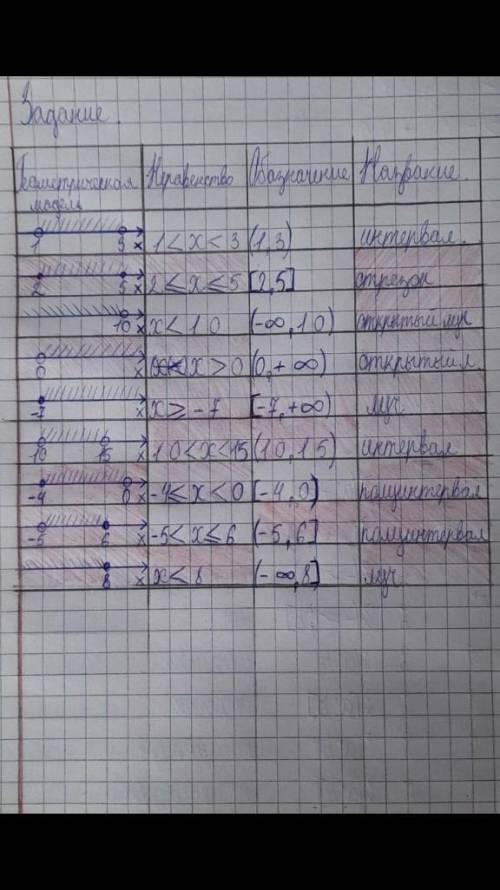 Задание.
Геометрическая модель Неравенство Обозначение Название.
1 3 x 1 < x < 3 (1,3) интервал.
2 5 x 2 ≤ x ≤ 5 [2,5] отрезок
10 x x < 10 (-∞,10) открытый луч
0 x x > 0 (0,+∞) открытый л.
-7 x x ≥ -7 [-7,+∞) луч
10 15 x 10 < x < 15 (10,15) интервал
-4 0 x -4 ≤ x < 0 [-4,0] полуинтервал
-5 6 x -5 < x ≤ 6 (-5,6] полуинтервал
8 x x < 8 (-∞,8] луч